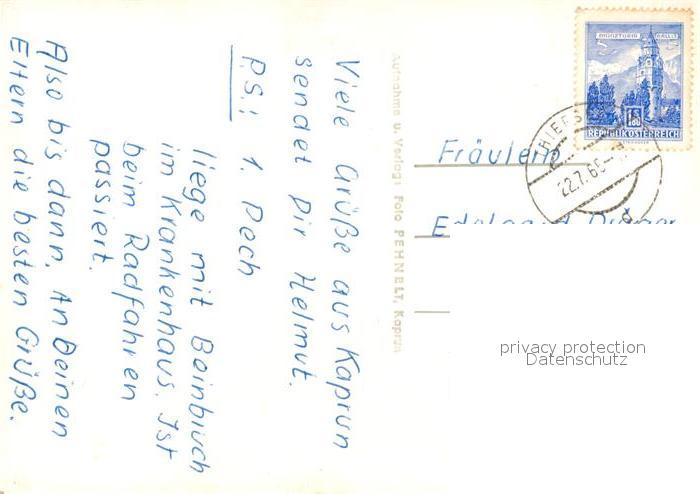 Viele Grüße aus Kaprun
sendet Dir Helmut.
P.S.: 1. Pech
liege mit Beinbruch
im Krankenhaus. Ist
beim Radfahren
passiert.
Also bis dann. An Deinen
Eltern die besten Grüße.
Aufnahme u. Verlag: Foto PEHNELT, Kaprun
MÜNZTURM HALL i. T.
S 1.80
REPUBLIK ÖSTERREICH
22.7.65
Fräulein
privacy protection
Datenschutz